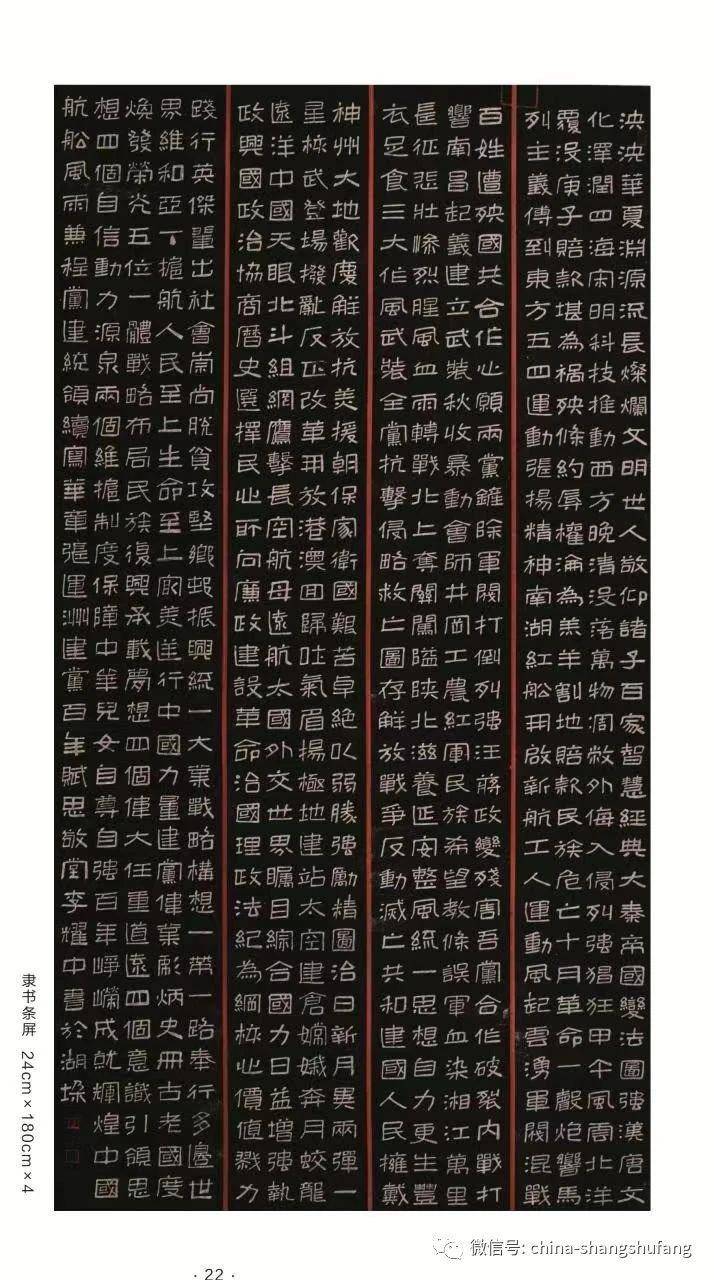 泱泱華夏淵源流長燦爛文明世人敬仰諸子百家智慧經典大秦帝國變法圖強漢唐文
化澤潤四海宋明科技推動西方晚清没落萬物凋敝外侮入侵列強猖狂甲午風雲北洋
覆没庚子賠款堪為禍殃條約辱權淪為羔羊割地賠款民族危亡十月革命一聲炮響馬
列主義傳到東方五四運動張揚精神南湖紅船開啟新航工人運動風起雲湧軍閥混戰
百姓遭殃國共合作心願兩黨鏟除軍閥打倒列強汪蔣政變殘害吾黨合作破裂内戰打
響南昌起義建立武裝秋收暴動會師井岡工農紅軍民族希望教條誤軍血染湘江萬里
長征悲壯慘烈腥風血雨轉戰北上奪關闖隘陝北滋養延安整風統一思想自力更生豐
衣足食三大作風武裝全黨抗擊侵略救亡圖存解放戰爭反動滅亡共和建國人民擁戴
神州大地歡慶解放抗美援朝保家衛國艱苦卓絶以弱勝強勵精圖治日新月異兩彈一
星核武登場撥亂反正改革開放港澳回歸吐氣眉揚極地建站太空建倉嫦娥奔月蛟龍
遠洋中國天眼北斗組網鷹擊長空航母遠航大國外交世界矚目綜合國力日益增強執
政興國政治協商曆史選擇民心所向廉政建設革命治國理政法紀為綱核心價值戮力
踐行英傑輩出社會崇尚脱貧攻堅鄉邨振興統一大業戰略構想一帶一路奉行多邊世
界維和亞丁護航人民至上生命至上家美送行中國力量建黨偉業彪炳史冊古老國度
煥發榮光五位一體戰略布局民族復興承載夢想四個偉大任重道遠四個意識引領思
想四個自信動力源泉兩個維護制度保障中華兒女自尊自強百年崢嶸成就輝煌中國
航船風雨兼程黨建統領續寫華章張運洲建黨百年賦思敬堂李耀中書於湖垛
隶书条屏 24cm×180cm×4
· 22 ·
微信号: china-shangshufang